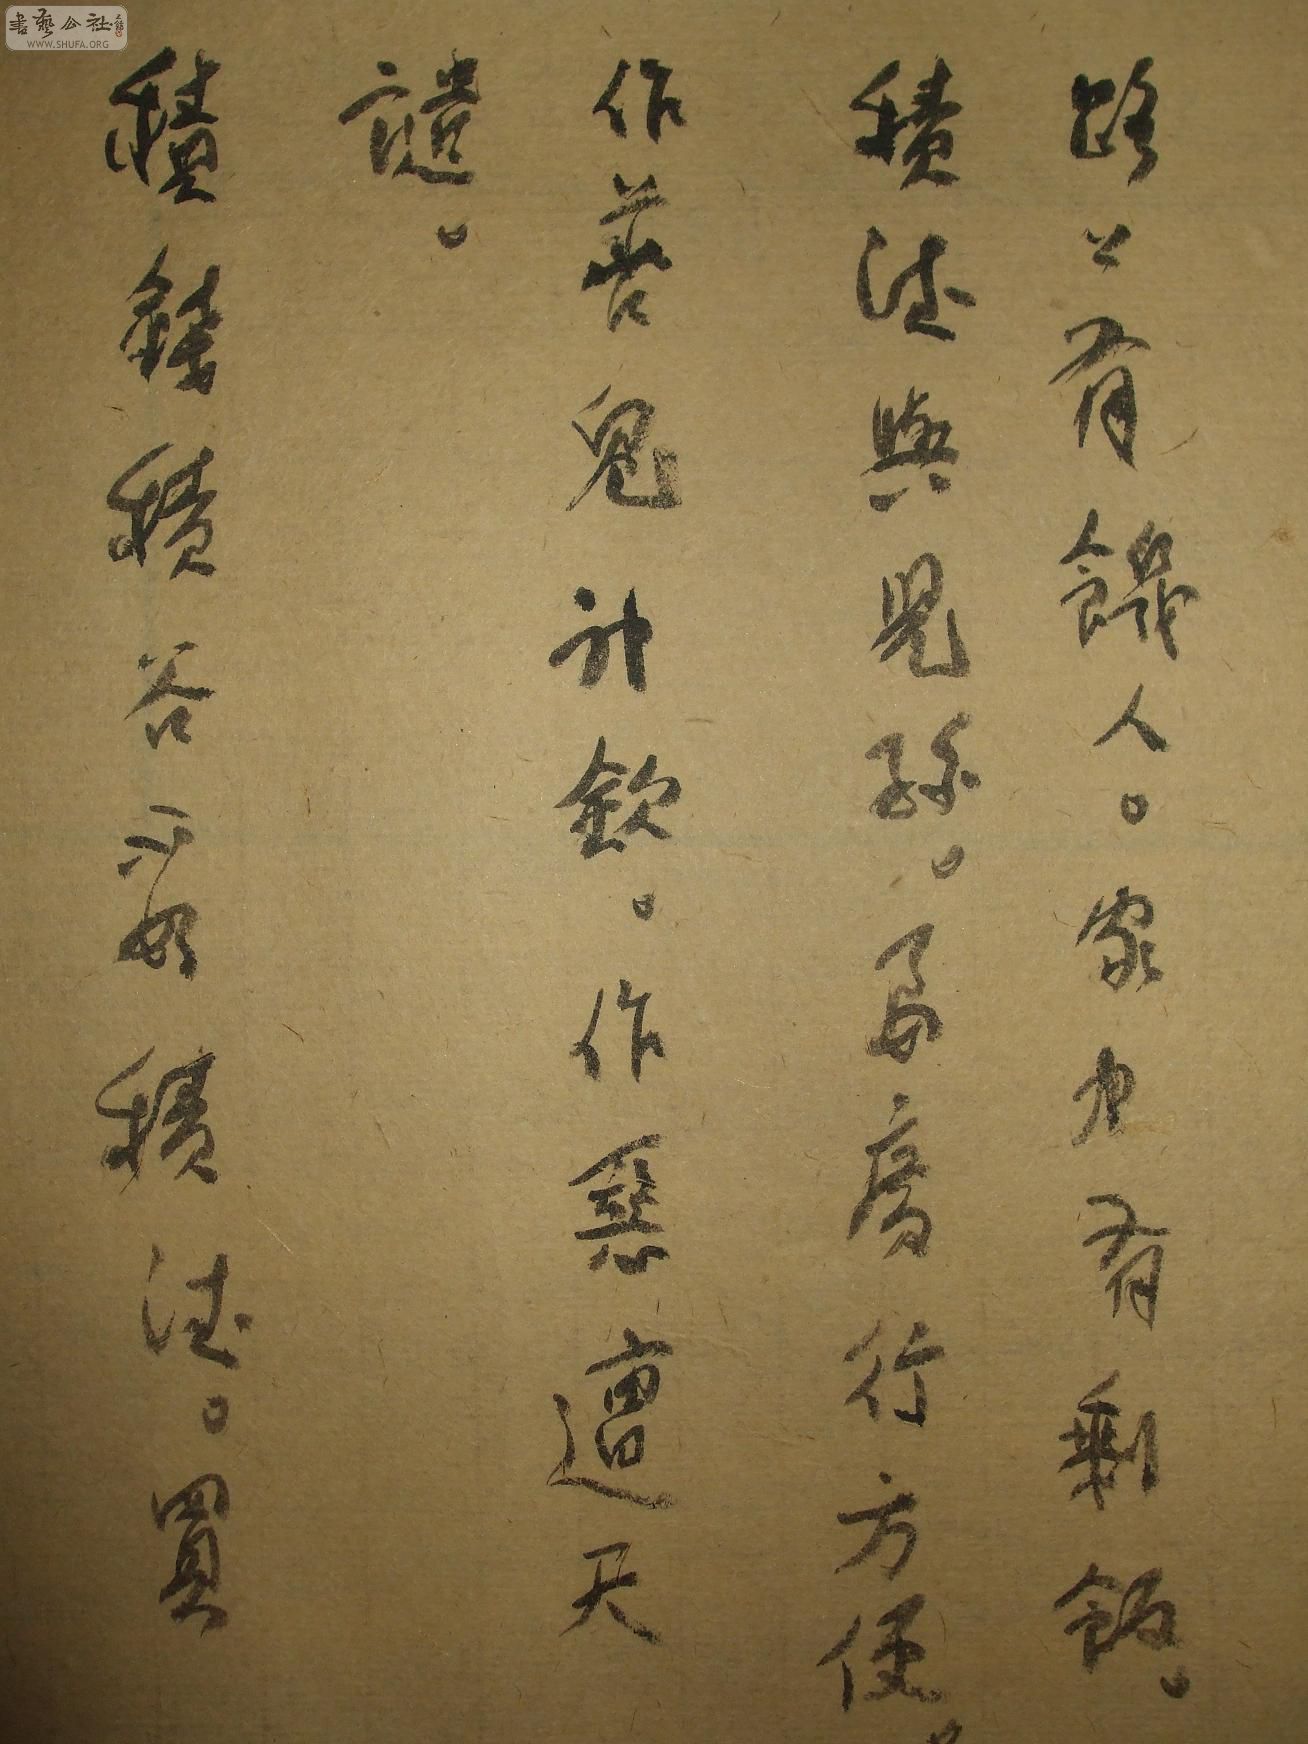 書藝公社
WWW.SHUFA.ORG
路上有饑人。家中有剩飯。
積德與兒孫。要廣行方便。
作善鬼神欽。作惡遭天
譴。
積錢積谷不如積德。買